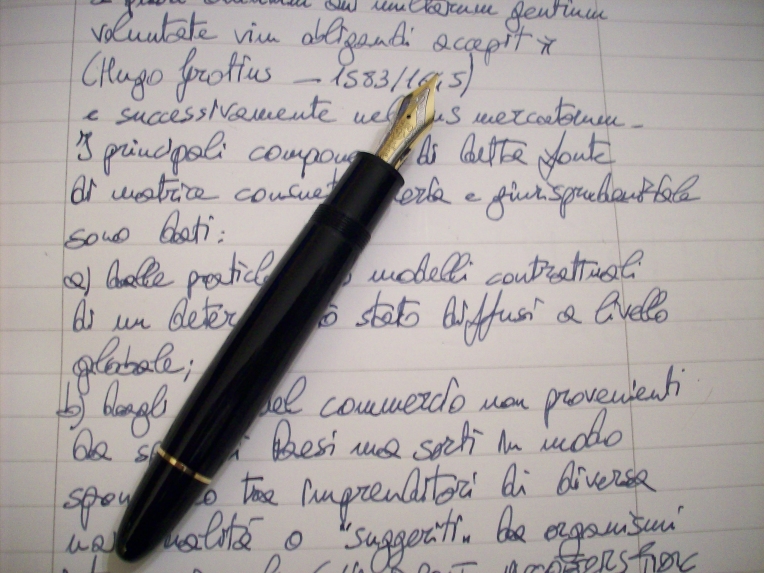 voluntate vim obligandi accepit"
(Hugo Grotius – 1583/16 5)
e successivamente nel us mercatorum –
I principali compone di detta fonte
di matrice consuet e giurisprudenziale
sono dati:
a) dalle pratic modelli contrattuali
di un deter o stato diffusi a livello
globale;
b) dagli del commercio non provenienti
da paesi ma sorti in modo
spon o tra imprenditori di diversa
na nalità o "suggeriti" da organismi